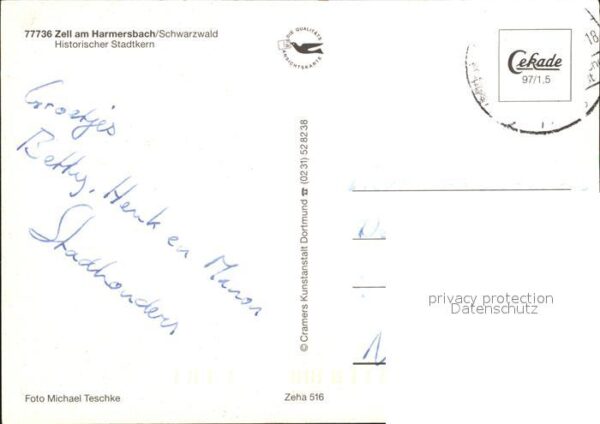 77736 Zell am Harmersbach/Schwarzwald
Historischer Stadtkern
DIE QUALITÄTS
ANSICHTSKARTE
Cekade
97/1,5
18
Groetjes
Betty, Henk en
Stadhouders
© Cramers Kunstanstalt Dortmund ☎ (02 31) 52 82 38
privacy protection
Datenschutz
Foto Michael Teschke
Zeha 516